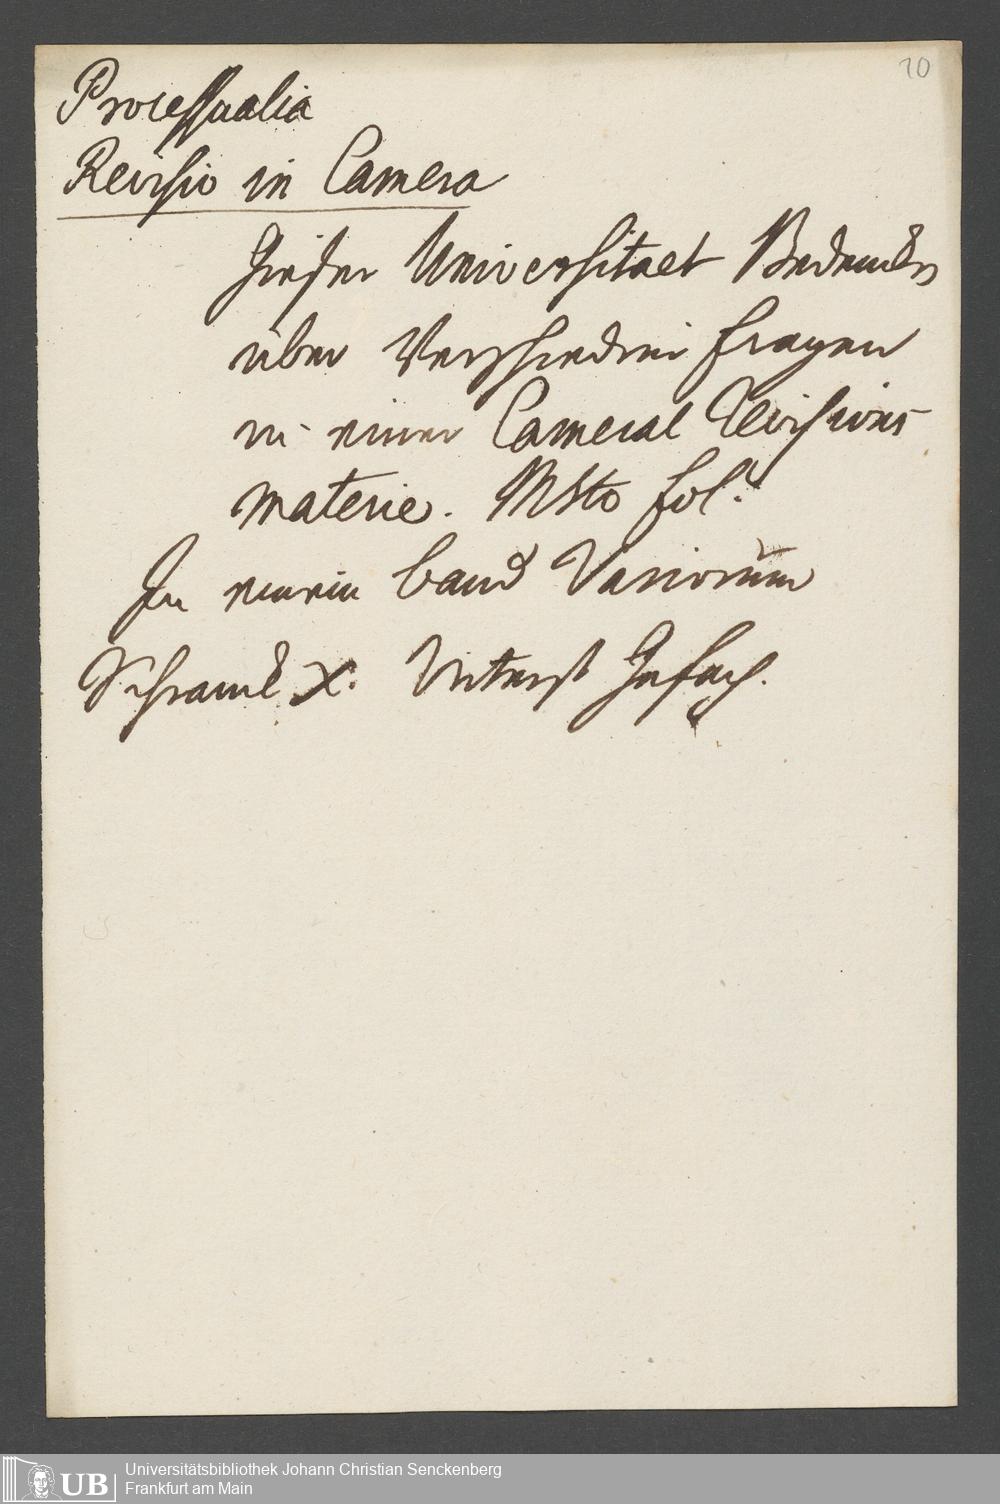 10
Processualia
Revisio in Camera
Gießer Universitaet Bedencken
über Verschiedene fragen
in einer Cameral Revisions
materie. Msto fol.
In einem band Variorum
Schranck X. Unterst Gefach.
UB
Universitätsbibliothek Johann Christian Senckenberg
Frankfurt am Main